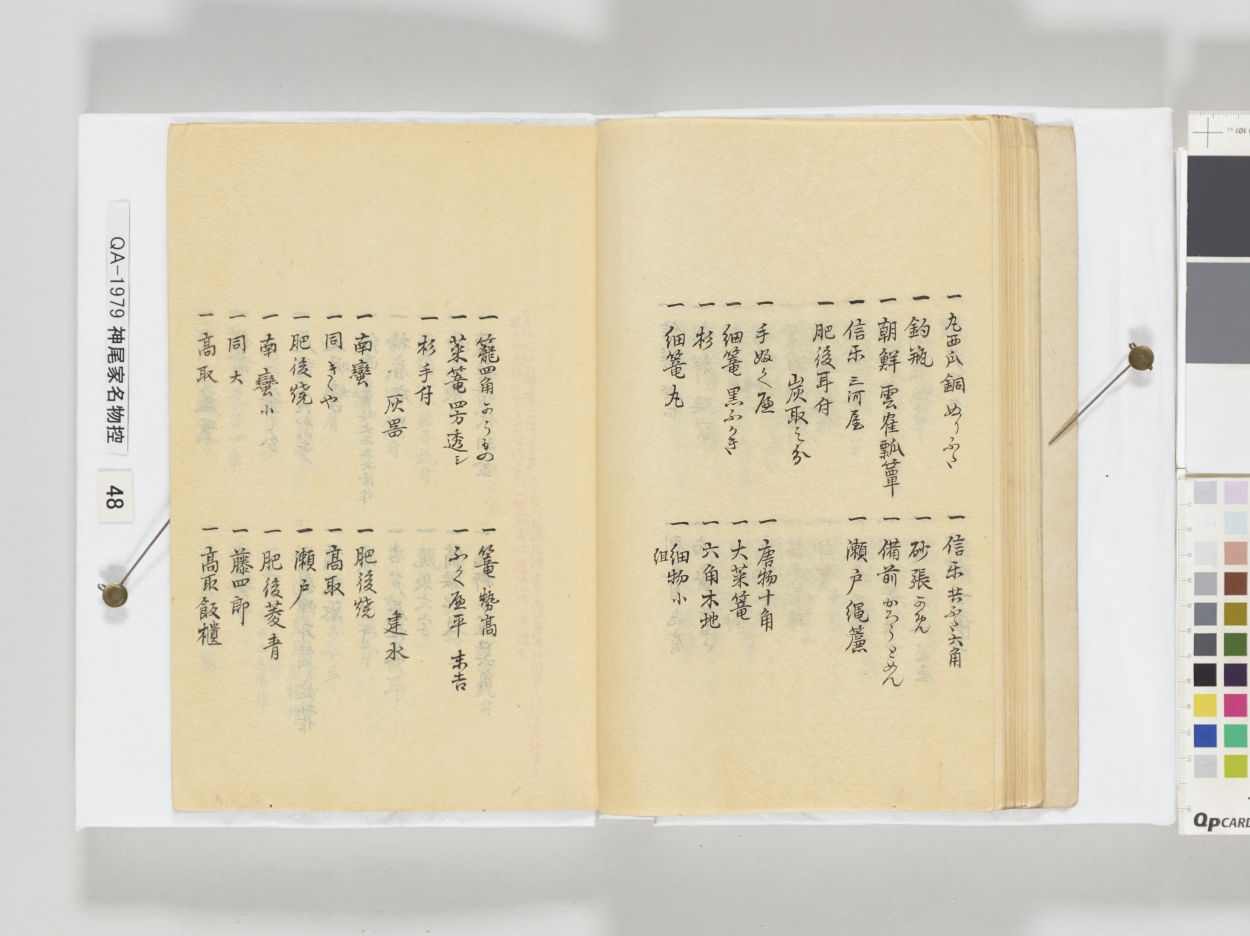 一 丸西瓜 銅 ぬりふた
一 信楽 共ふた 六角
一 釣瓶
一 砂張
一 朝鮮 雲雀瓢箪
一 備前
一 信楽 三河屋
一 瀬戸 縄簾
一 肥後耳付
炭取之分
一 手ぬく
一 唐物十角
一 細篭 黒ふかき
一 大菜篭
一 杉
一 六角木地
一 細篭 丸
一 細物小
組
一 籠四角
一 篭 勢高
一 菜篭 四方透シ
一 ふくべ平 末吉
一 杉手付
灰器
建水
一 南蠻
一 肥後焼
一 同
一 高取
一 肥後焼
一 瀬戸
一 南蠻小
一 肥後菱青
一 同大
一 藤四郎
一 高取
一 高取飯櫃
QA-1979 神尾家名物控
48
QP CARD